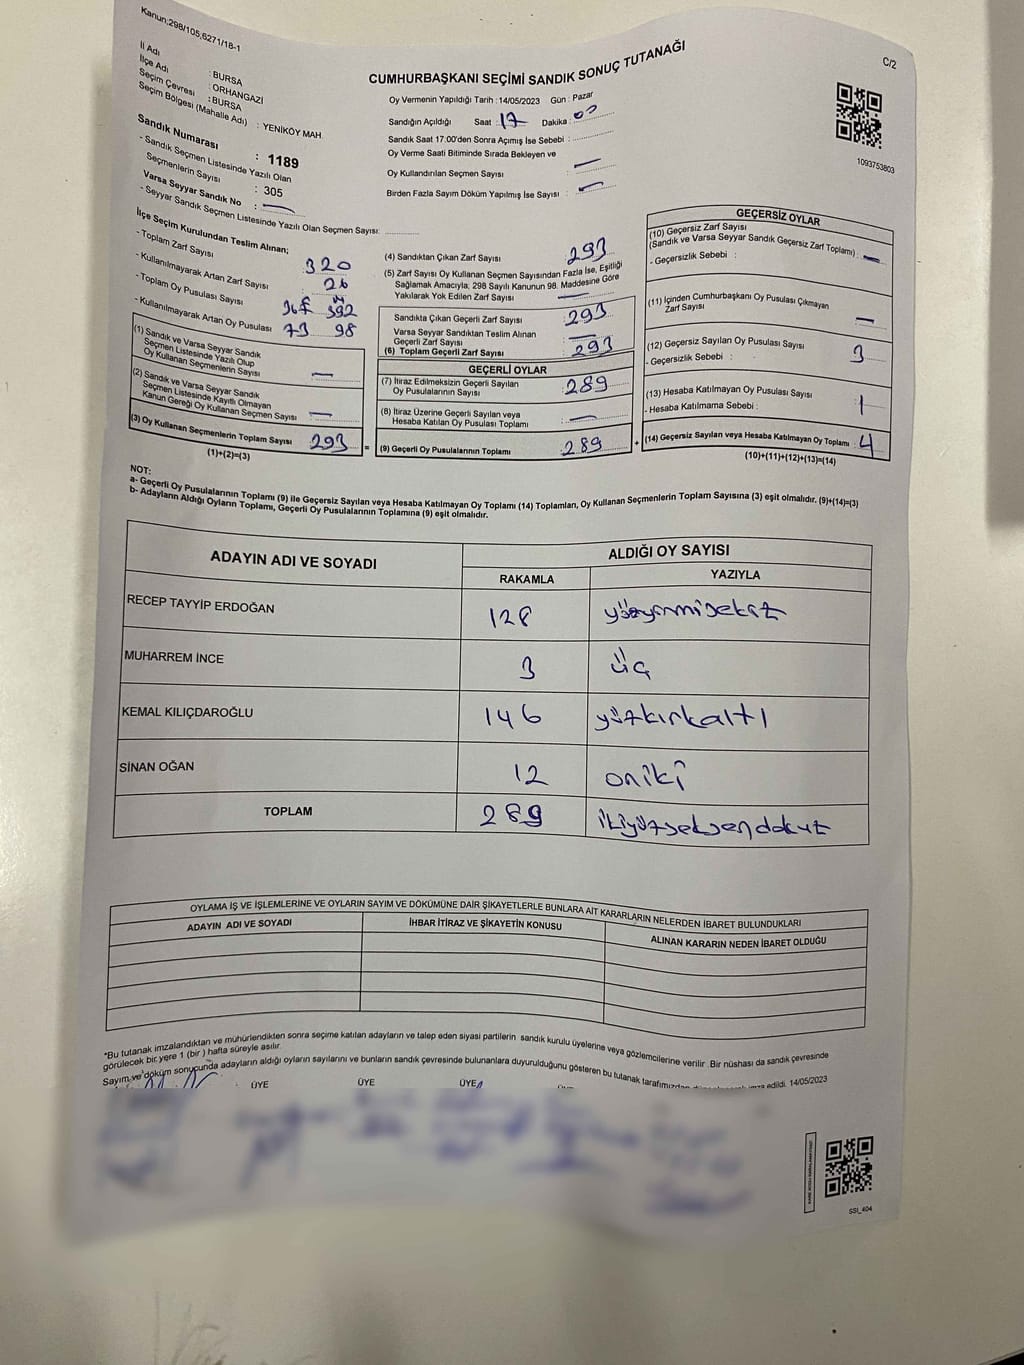 Kanun;298/105,6271/18-1
C/2
CUMHURBAŞKANI SEÇİMİ SANDIK SONUÇ TUTANAĞI
İl Adı : BURSA
İlçe Adı : ORHANGAZİ
Seçim Çevresi : BURSA
Seçim Bölgesi (Mahalle Adı) : YENİKÖY MAH.
Sandık Numarası : 1189
- Sandık Seçmen Listesinde Yazılı Olan
Seçmenlerin Sayısı : 305
Varsa Seyyar Sandık No : —
- Seyyar Sandık Seçmen Listesinde Yazılı Olan Seçmen Sayısı:
Oy Vermenin Yapıldığı Tarih : 14/05/2023 Gün : Pazar
Sandığın Açıldığı Saat : 17 Dakika : 00
Sandık Saat 17:00'den Sonra Açımış İse Sebebi :
Oy Verme Saati Bitiminde Sırada Bekleyen ve
Oy Kullandırılan Seçmen Sayısı : —
Birden Fazla Sayım Döküm Yapılmış İse Sayısı : —
1093753803
İlçe Seçim Kurulundan Teslim Alınan;
- Toplam Zarf Sayısı 320
- Kullanılmayarak Artan Zarf Sayısı 26
- Toplam Oy Pusulası Sayısı 392
- Kullanılmayarak Artan Oy Pusulası 73 98
(1) Sandık ve Varsa Seyyar Sandık
Seçmen Listesinde Yazılı Olup
Oy Kullanan Seçmenlerin Sayısı —
(2) Sandık ve Varsa Seyyar Sandık
Seçmen Listesinde Kayıtlı Olmayan
Kanun Gereği Oy Kullanan Seçmen Sayısı —
(3) Oy Kullanan Seçmenlerin Toplam Sayısı 293
(1)+(2)=(3)
(4) Sandıktan Çıkan Zarf Sayısı 293
(5) Zarf Sayısı Oy Kullanan Seçmen Sayısından Fazla İse, Eşitliği
Sağlamak Amacıyla; 298 Sayılı Kanunun 98. Maddesine Göre
Yakılarak Yok Edilen Zarf Sayısı —
Sandıkta Çıkan Geçerli Zarf Sayısı 293
Varsa Seyyar Sandıktan Teslim Alınan
Geçerli Zarf Sayısı —
(6) Toplam Geçerli Zarf Sayısı 293
GEÇERLİ OYLAR
(7) İtiraz Edilmeksizin Geçerli Sayılan
Oy Pusulalarının Sayısı 289
(8) İtiraz Üzerine Geçerli Sayılan veya
Hesaba Katılan Oy Pusulası Toplamı —
= (9) Geçerli Oy Pusulalarının Toplamı 289
GEÇERSİZ OYLAR
(10) Geçersiz Zarf Sayısı
(Sandık ve Varsa Seyyar Sandık Geçersiz Zarf Toplamı) —
- Geçersizlik Sebebi :
(11) İçinden Cumhurbaşkanı Oy Pusulası Çıkmayan
Zarf Sayısı —
(12) Geçersiz Sayılan Oy Pusulası Sayısı 3
- Geçersizlik Sebebi :
(13) Hesaba Katılmayan Oy Pusulası Sayısı 1
- Hesaba Katılmama Sebebi :
+ (14) Geçersiz Sayılan veya Hesaba Katılmayan Oy Toplamı 4
(10)+(11)+(12)+(13)=(14)
NOT:
a- Geçerli Oy Pusulalarının Toplamı (9) ile Geçersiz Sayılan veya Hesaba Katılmayan Oy Toplamı (14) Toplamları, Oy Kullanan Seçmenlerin Toplam Sayısına (3) eşit olmalıdır. (9)+(14)=(3)
b- Adayların Aldığı Oyların Toplamı, Geçerli Oy Pusulalarının Toplamına (9) eşit olmalıdır.
ADAYIN ADI VE SOYADI ALDIĞI OY SAYISI
RAKAMLA YAZIYLA
RECEP TAYYİP ERDOĞAN 128 yüzyirmisekiz
MUHARREM İNCE 3 üç
KEMAL KILIÇDAROĞLU 146 yüzkırkaltı
SİNAN OĞAN 12 oniki
TOPLAM 289 ikiyüzseksendokuz
OYLAMA İŞ VE İŞLEMLERİNE VE OYLARIN SAYIM VE DÖKÜMÜNE DAİR ŞİKAYETLERLE BUNLARA AİT KARARLARIN NELERDEN İBARET BULUNDUKLARI
ADAYIN ADI VE SOYADI İHBAR İTİRAZ VE ŞİKAYETİN KONUSU ALINAN KARARIN NEDEN İBARET OLDUĞU
*Bu tutanak imzalandıktan ve mühürlendikten sonra seçime katılan adayların ve talep eden siyasi partilerin sandık kurulu üyelerine veya gözlemcilerine verilir. Bir nüshası da sandık çevresinde
görülecek bir yere 1 (bir) hafta süreyle asılır.
Sayım ve döküm sonucunda adayların aldığı oyların sayılarını ve bunların sandık çevresinde bulunanlara duyurulduğunu gösteren bu tutanak tarafımızdan edildi. 14/05/2023
ÜYE ÜYE ÜYE
SSI_404